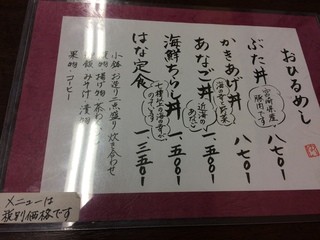 おひるめし
ぶた丼 八七〇!
宮崎県産
豚肉です
かきあげ丼 八七〇!
海の幸と野菜
あなご丼 一、五〇〇!
近海の
あなご
海鮮ちらし丼 一、五〇〇!
十種以上の海の幸が
のってます
はな定食 一、三五〇!
小鉢 お造り二点盛り 炊き合わせ
焼物 揚げ物 茶わん
御飯 みそ汁 漬物
果物 コーヒー
メニューは
税別価格です